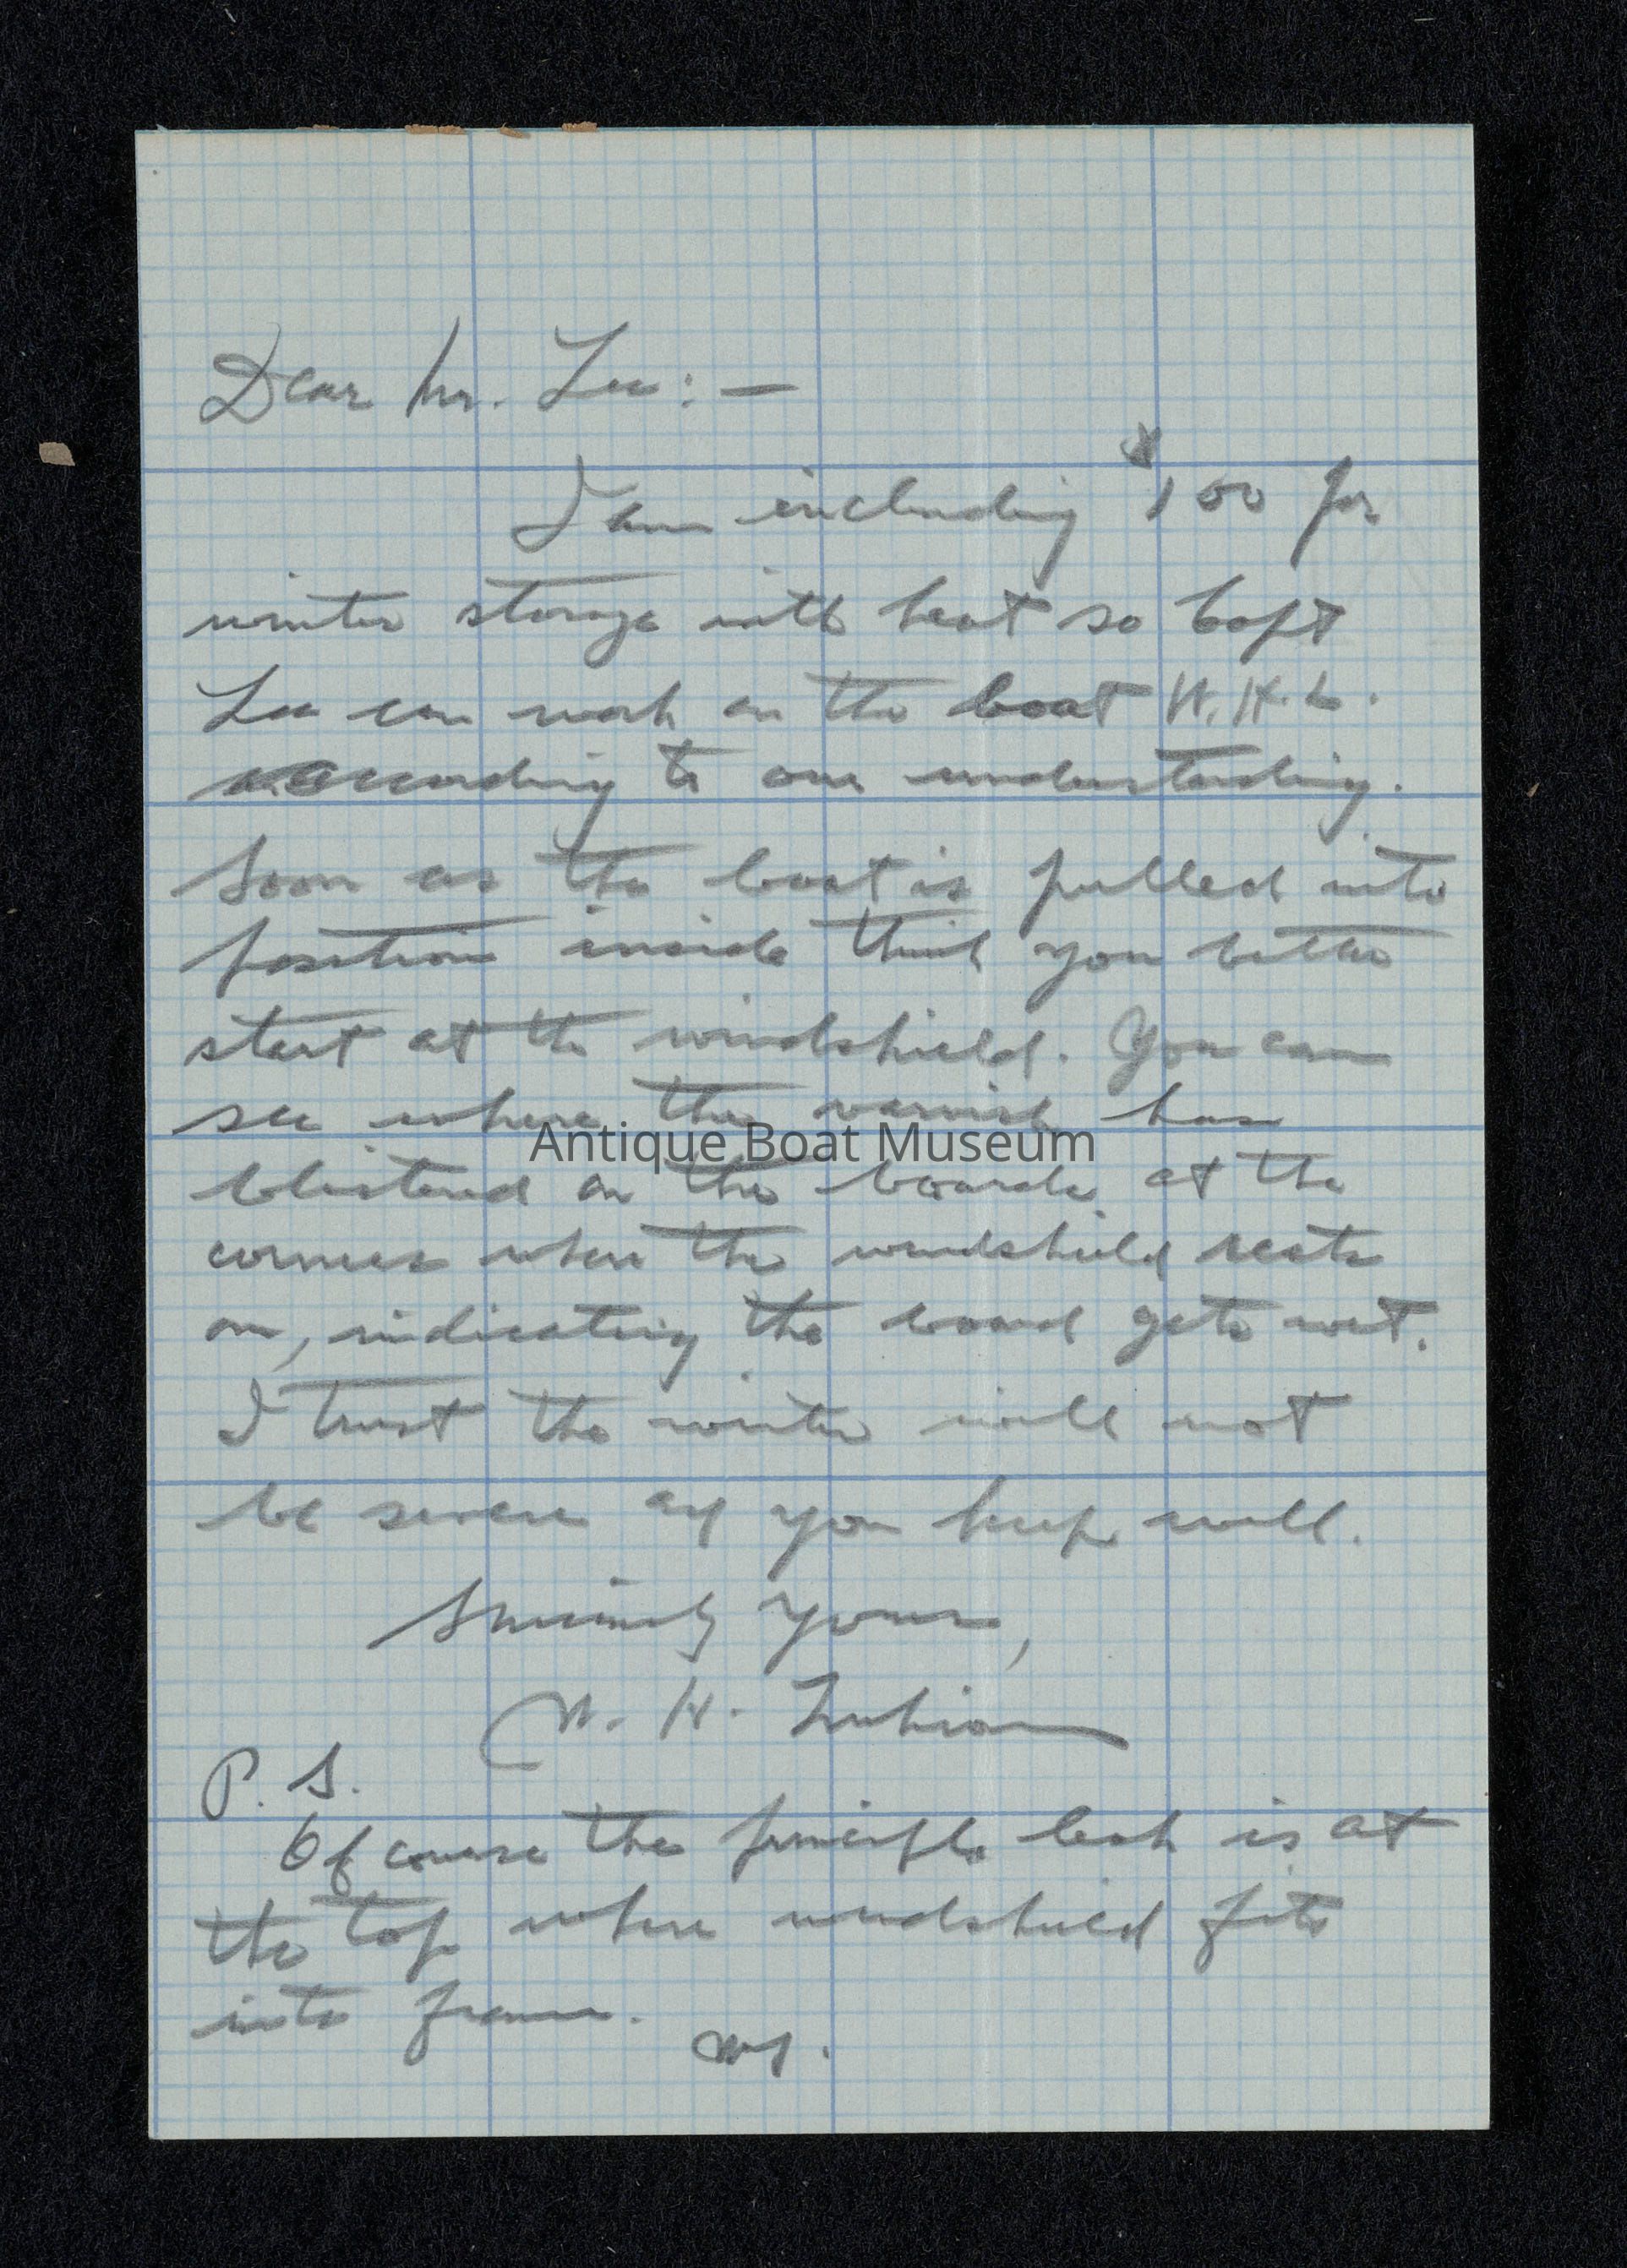 Dear Mr. Lee: —
I am including $100 for
winter storage with heat so Capt
Lee can work on the boat W.H.L.
according to our understanding.
Soon as the boat is pulled into
position inside think you better
start at the windshield. You can
see where the varnish has
Antique Boat Museum
blistered on the boards at the
corners where the windshield rests
on, indicating the board gets wet.
I trust the winter will not
be severe and you keep well.
Sincerely yours,
W. H.
P. S.
Of course the principle leak is at
the top where windshield fits
into frame.